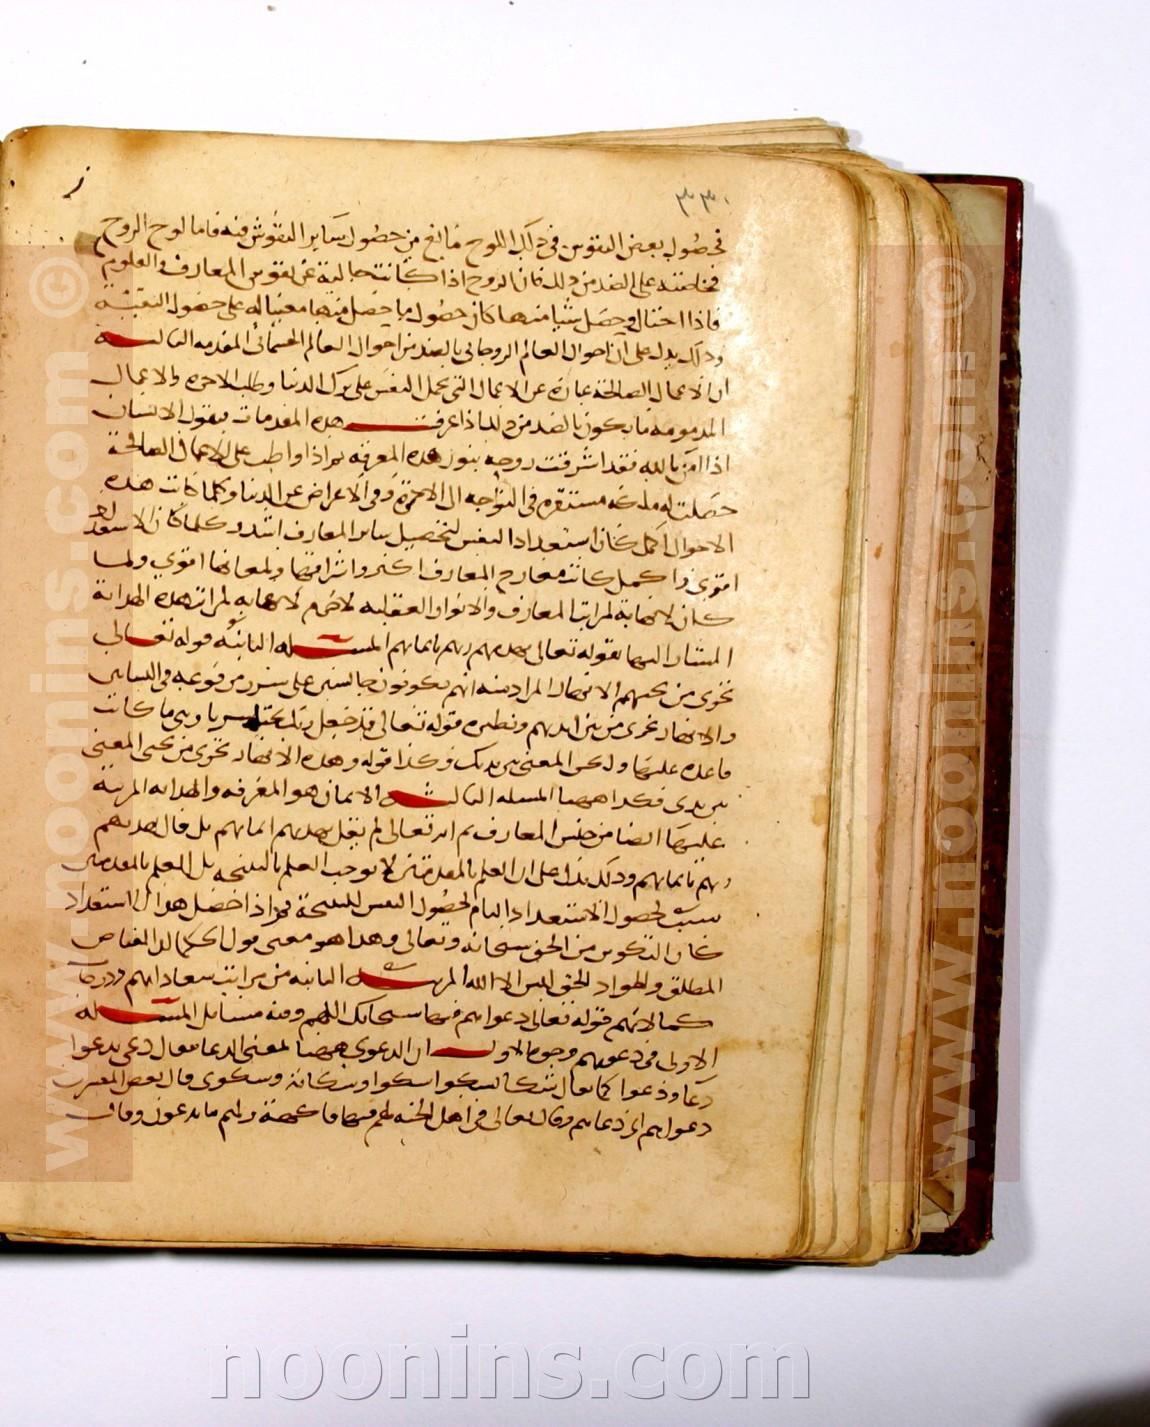 ٣٣٠
فحصول بعض النقوش فى ذلك اللوح مانع من حصول ساير النقوش فيه فاما لوح الروح
فخاصته على الضد من ذلك فان الروح اذا كانت خالية عن نقوش المعارف والعلوم
فاذا احتال وحصل شيا منها كان حصول ما حصل منها معينا له على حصول البقية
وذلك يدل على ان احوال العالم الروحانى بالضد من احوال العالم الجسمانى المقدمه الثالثة
ان الاعمال الصالحة عبارة عن الاعمال التى تحمل النفس على ترك الدنيا وطلب الاخره والاعمال
المذمومه ما يكون بالضد من ذلك اذا عرفت هذه المقدمات فنقول الانسان
اذا آمن بالله فقد اشرقت روحه بنور هذه المعرفه ثم اذا واظب على الاعمال الصالحة
حصلت له ملكه مستقره فى التوجه الى الاخرة وفى الاعراض عن الدنيا وكلما كانت هذه
الاحوال اكمل كان استعداد النفس لتحصيل ساير المعارف اشد وكلما كان الاستعداد
اقوى واكمل كانت معارج المعارف اكثر واشراقها ولمعانها اقوى ولما
كان لا نهاية لمراتب المعارف والانوار العقليه لا جرم لا نهايه لمراتب هذه الهداية
المشار اليها بقوله تعالى يهديهم ربهم بايمانهم المسئله الثانيه قوله تعالى
تجرى من تحتهم الانهار المراد منه انهم يكونون جالسين على سرر مرفوعه فى البساتين
والانهار تجرى من بين ايديهم ونظيره قوله تعالى قد جعل ربك تحتك سريا وهى ما كانت
قاعده عليها ولكن المعنى بين يديك وكذا قوله وهذه الانهار تجرى من تحتى المعنى
بين يدى فكذا ههنا المسله الثالثه الايمان هو المعرفه والهدايه المرتبة
عليها ايضا من جنس المعارف ثم انه تعالى لم يقل يهديهم ايمانهم بل قال يهديهم
ربهم بايمانهم وذلك يدل على ان العلم بالمقدمتين لا يوجب العلم بالنتيجه بل العلم بالمقدمتين
سبب لحصول الاستعداد التام لحصول النفس للنتيجة ثم اذا حصل هذا الاستعداد
كان التكوين من الحق سبحانه وتعالى وهذا هو معنى قول الحكما ان الفياض
المطلق والجواد الحق ليس الا الله المرتبه الثانيه من مراتب سعاداتهم ودرجات
كمالاتهم قوله تعالى دعواهم فيها سبحانك اللهم وفيه مسائل المسئله
الاولى فى دعويهم وجوه الاول ان الدعوى ههنا لمعنى الدعا يقال دعى يدعوا
دعا ودعوا كما يقال شكا يشكوا شكوا وشكاية وشكوى قال بعض المفسرين
دعواهم اى دعاءهم وقال تعالى فى اهل الجنه لهم فيها فاكهة ولهم ما يدعون وقال
noonins.com
www.noonins.com ©
www.noonins.com ©